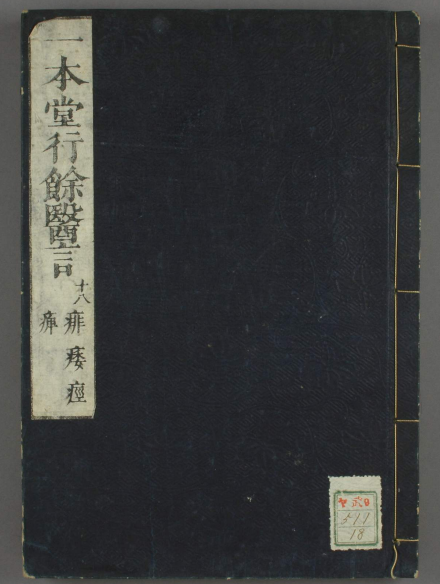 一本堂行餘醫言
十八
痱痿痙
痺
18